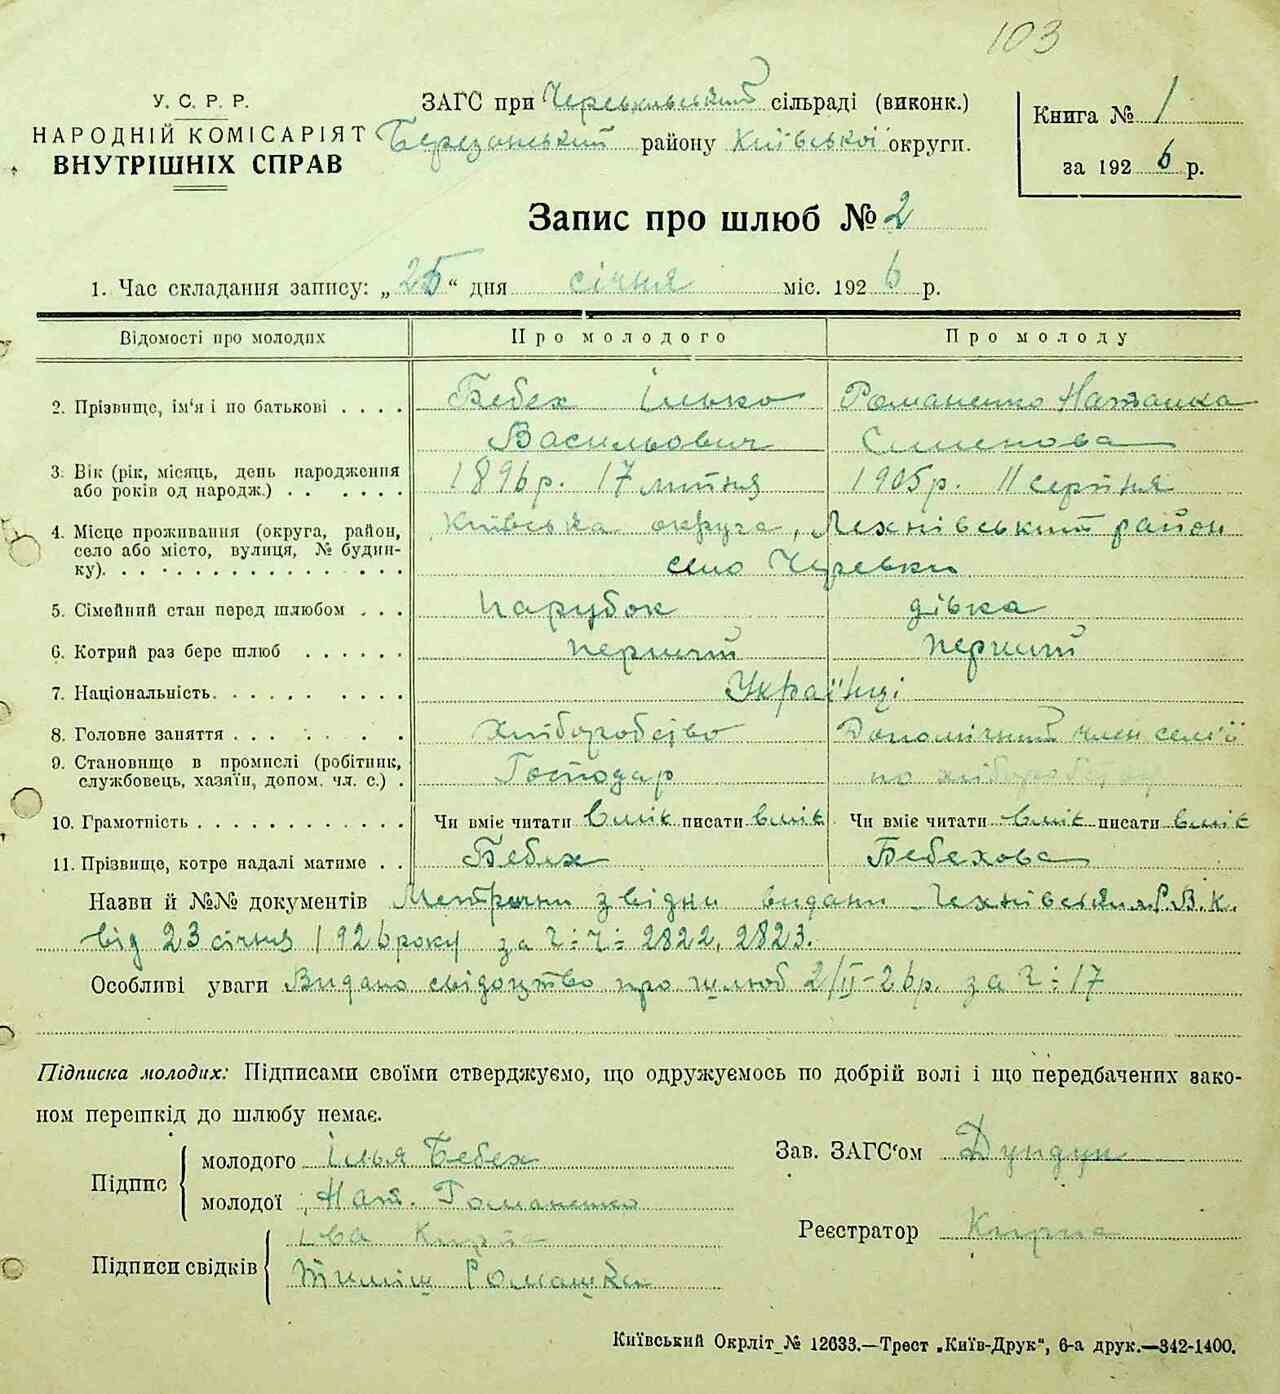 103
У. С. Р. Р.
НАРОДНІЙ КОМІСАРІЯТ
ВНУТРІШНІХ СПРАВ
ЗАГС при Черевківський сільраді (виконк.)
Березанський району Київської округи.
Книга № 1
за 1926 р.
Запис про шлюб № 2
1. Час складання запису: „25“ дня січня міс. 1926 р.
Відомості про молодих Про молодого Про молоду
2. Прізвище, ім'я і по батькові . . . . Бебех Ілько Романенко Наталка
Васильович Семенова
3. Вік (рік, місяць, день народження 1896р. 17 липня 1905р. 11 серпня
або років од народж.) . . . . . .
4. Місце проживання (округа, район, Київська округа, район
село або місто, вулиця, № будин- село Черевки
ку). . . . . . . . . . . . . . .
5. Сімейний стан перед шлюбом . . . парубок дівка
6. Котрий раз бере шлюб . . . . . . перший перший
7. Національність. . . . . . . . . . Українці
8. Головне заняття . . . . . . . . Хліборобство Допомічний член семʼї
9. Становище в промислі (робітник, Господар по
службовець, хазяїн, допом. чл. с.) .
10. Грамотність . . . . . . . . . . . . Чи вміє читати вміє писати вміє Чи вміє читати вміє писати вміє
11. Прізвище, котре надалі матиме . . Бебех Бебехова
Назви й №№ документів Метричні видани Р.В.К.
від 23 січня 1926 року за Ч:Ч: 2822, 2823.
Особливі уваги Видано свідоцтво про шлюб 2/II-26р. за Ч: 17
Підписка молодих: Підписами своїми стверджуємо, що одружуємось по добрій волі і що передбачених зако-
ном перешкід до шлюбу немає.
Підпис молодого Ілья Бебех
молодої Нат. Романенко
Зав. ЗАГС'ом Дундук
Підписи свідків
Реєстратор
Київський Окрліт № 12633.—Трест „Київ-Друк“, 6-а друк.—342-1400.